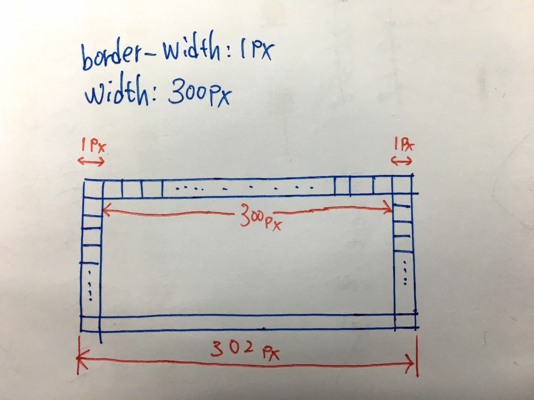 border-width: 1px
width: 300px
1px 1px
300px
302px